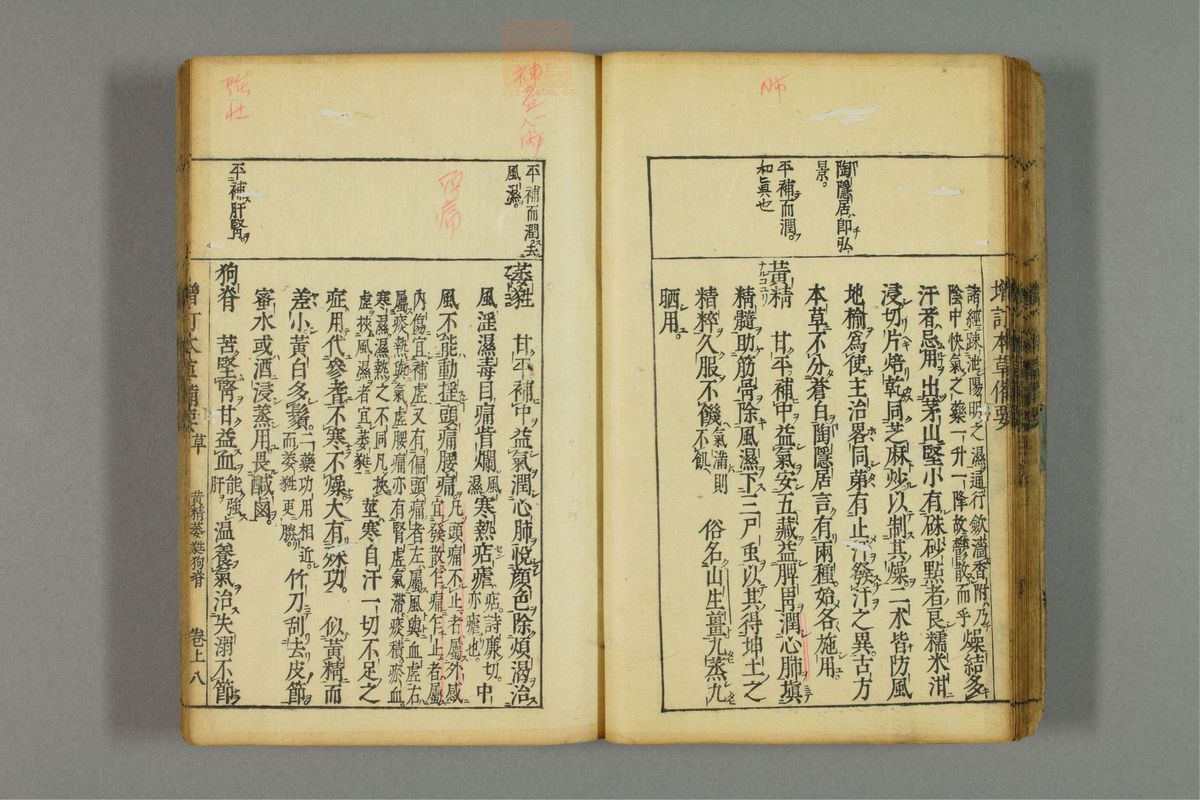 增訂本草備要
陶隱居即弘
景。
平補而潤。
和眞也
諸經疎泄陽明之濕通行歛濇香附乃
陰中快氣之藥一升一降故鬱散而平
燥結多
汗者忌用出茅山堅小有硃砂點者良糯米泔
浸切片焙乾同芝麻炒以制其燥二术皆防風
地榆爲使主治畧同苐有止汗發汗之異古方
本草不分蒼白陶隱居言有兩種始各施用
黃精
ナルコユリ
甘平補中益氣安五藏益脾胃潤心肺塡
精髓助筋骨除風濕下三尸虫以其得坤土之
精粹久服不饑氣滿則不飢
俗名山生薑九蒸九
晒用。
平補而潤去
風濕。
平補肝腎
萎蕤
甘平補中益氣潤心肺悅顏色除煩渴治
風淫濕毒目痛眥爛風濕寒熱痁瘧痁詩廉切。亦瘧也。中
風不能動揺頭痛腰痛凡頭痛不止者屬外感宜發散乍痛乍止者屬
內傷宜補虛又有偏頭痛者左屬風與血虛右
屬痰熱與氣虛腰痛亦有腎虛氣滯痰積瘀血
寒濕濕熱之不同凡挾
虛挾風濕者宜萎蕤
莖寒自汗一切不足之
症用代參耆不寒不燥大有殊功。
似黃精而
差小黃白多鬚。二藥功用相近。而萎蕤更勝。竹刀刮去皮節
蜜水或酒浸蒸用畏鹹鹵。
狗脊
苦堅腎甘益血能強肝温養氣治失溺不節
增訂本草備要
草
黃精萎蕤狗脊
卷上
八
肺
強壯
頭痛